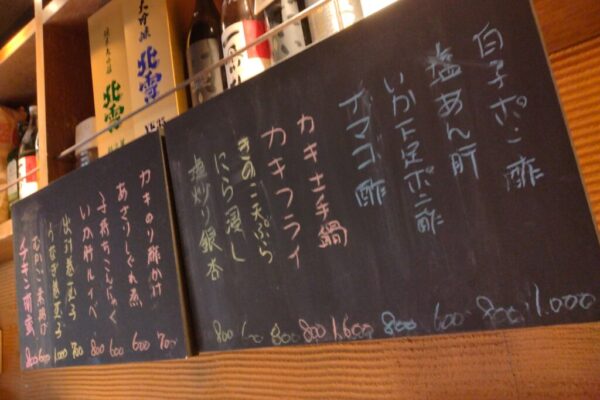 白子ポン酢 1.000
塩あん肝 800
いか下足ポン酢 600
ナマコ酢 800
カキ土手鍋 1,600
カキフライ 800
きのこ天ぷら 800
にら浸し 600
塩炒り銀杏 800
カキのり酢かけ 700
あさりしぐれ煮 600
子持ちこんにゃく 600
いか肝ルイベ 800
出汁巻玉子 700
うなぎ巻玉子 1.000
むかご素揚げ 600
チキン南蛮 800
大吟醸
北雪
北雪